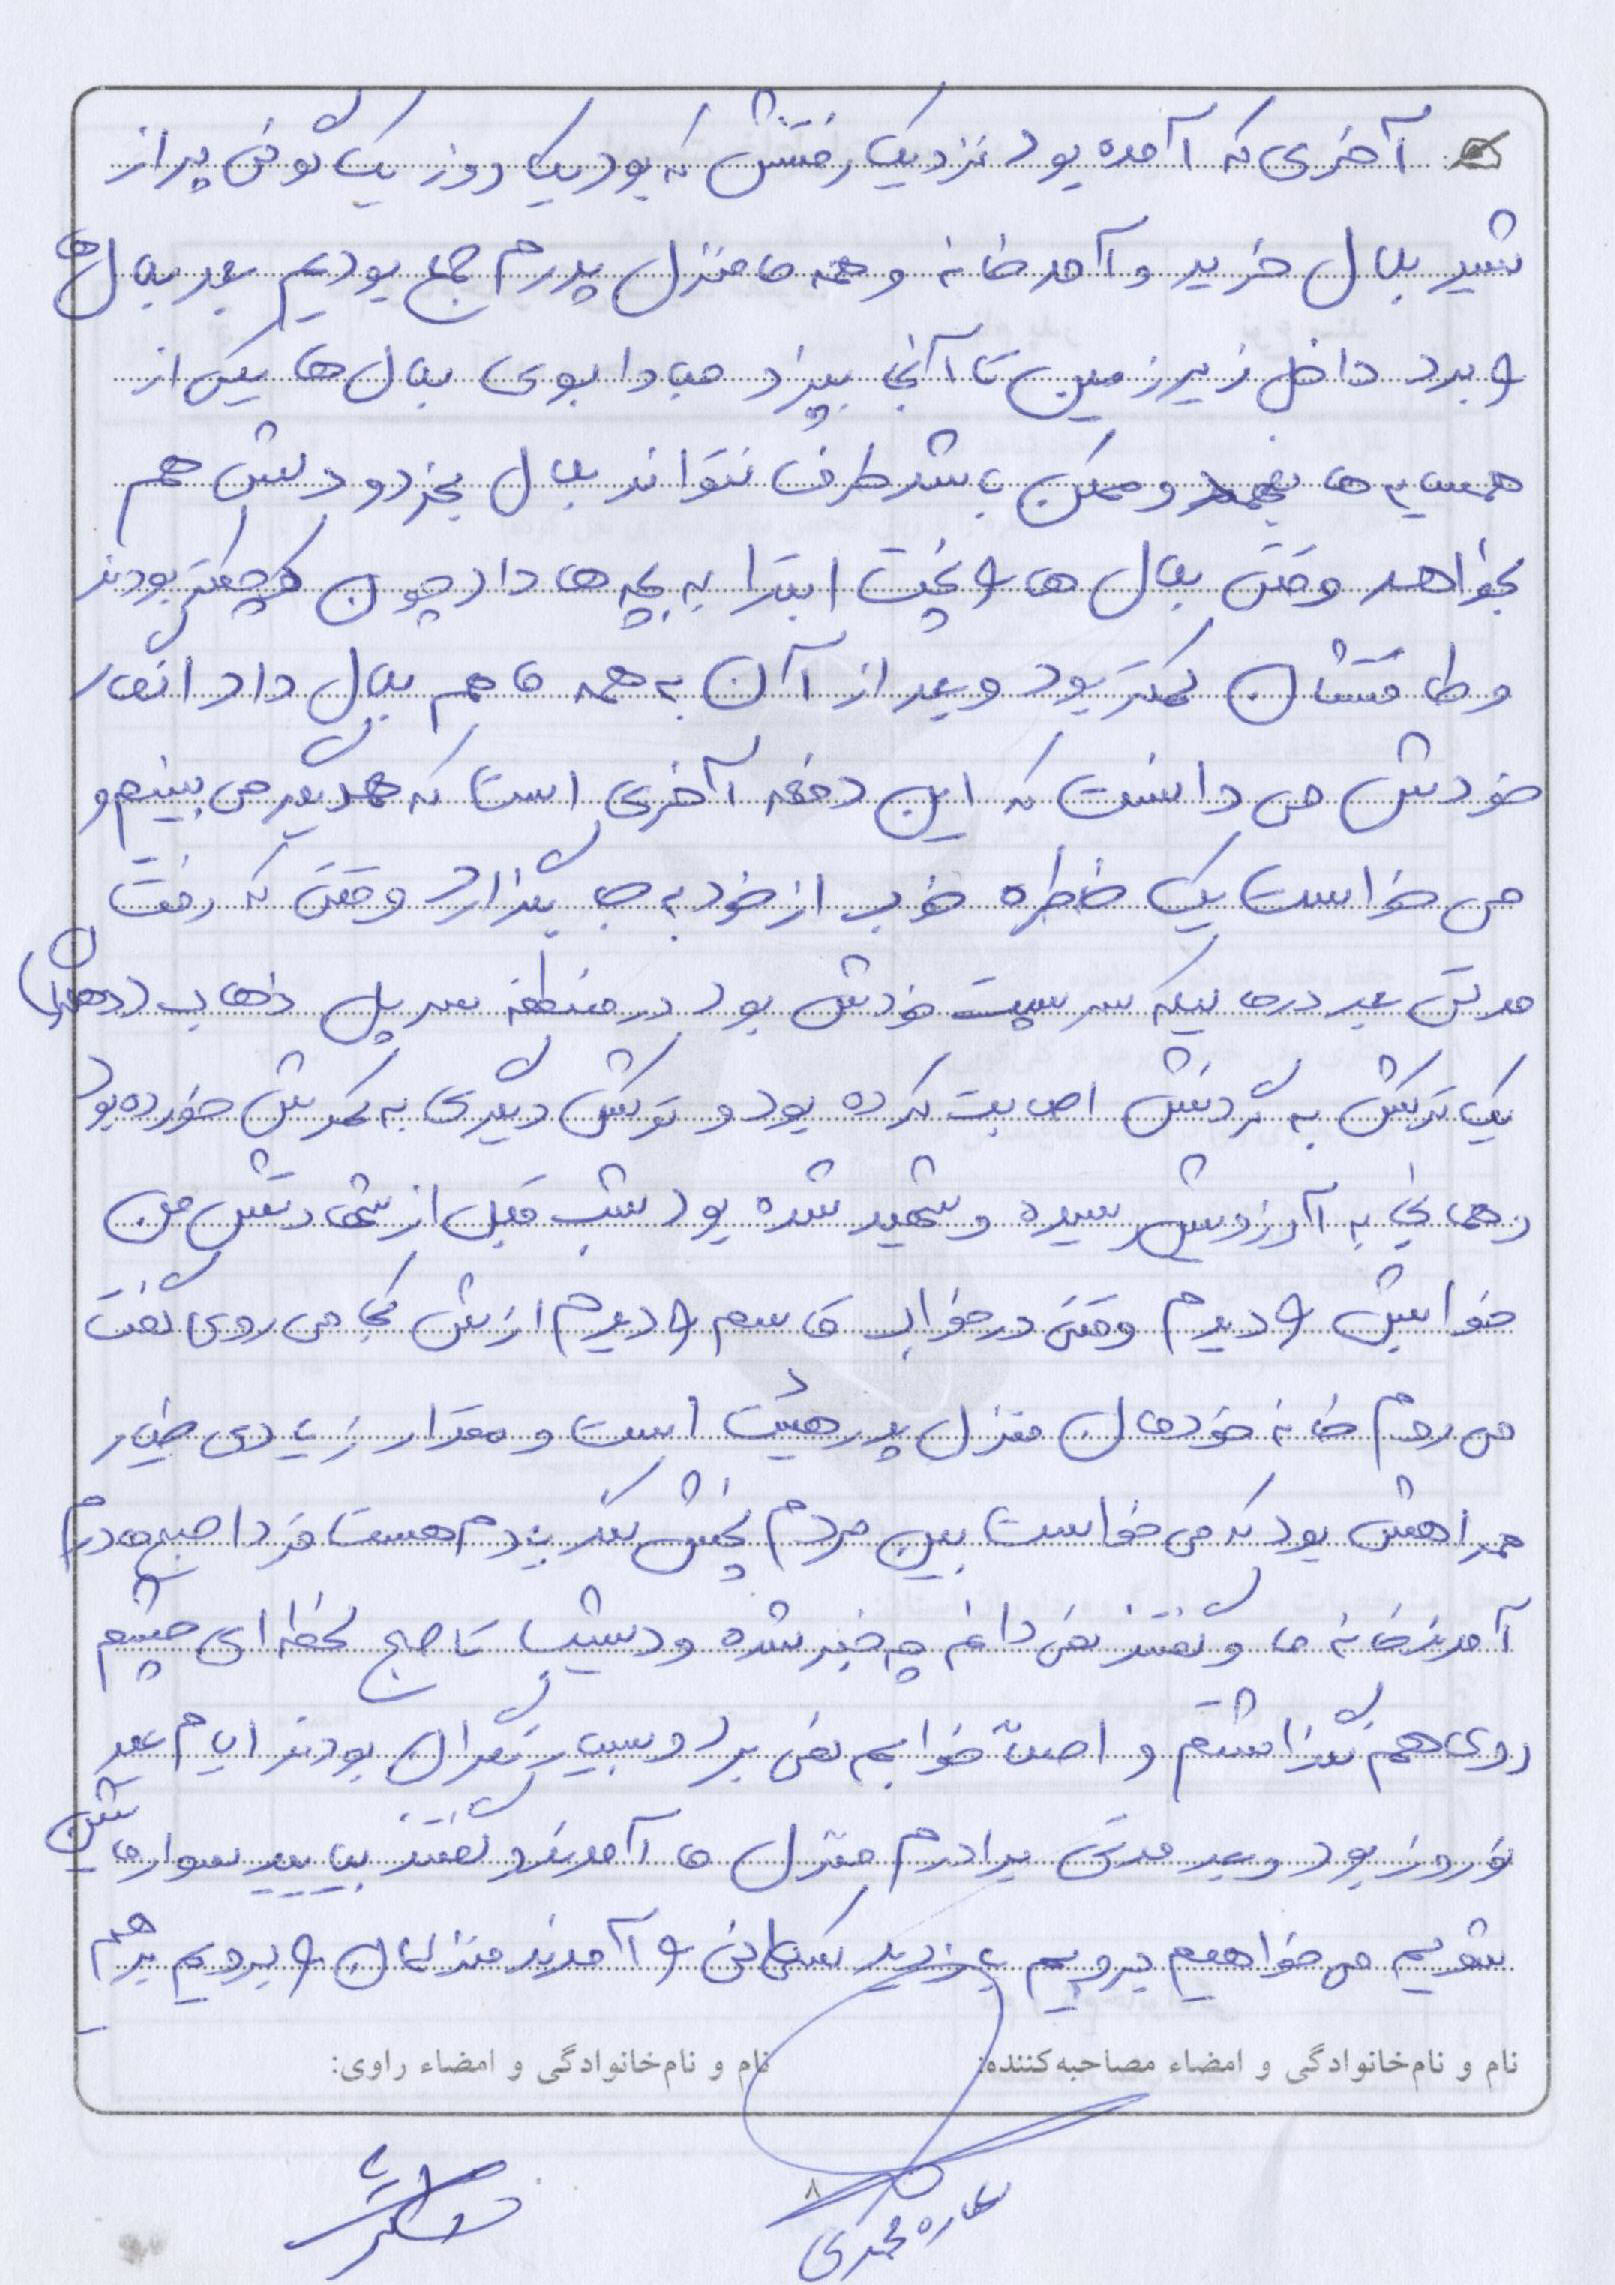 آخری که آمده بود نزدیک رفتنش که بود یک روز یک گونی پر از
شیر بلال خرید و آمد خانه و همه ما منزل پدرم جمع بودیم بعد بلال ها
را برد داخل زیرزمین تا آنجا بپزد مبادا بوی بلال ها یکی از
همسایه ها بفهمد و ممکن باشد طرف نتواند بلال بخرد و دلش هم
بخواهد وقتی بلال ها را پخت ابتدا به بچه ها داد چون کوچکتر بودند
و طاقتشان کمتر بود و بعد از آن به همه ما هم بلال داد انگار
خودش می دانست که این دفعه آخری است که همدیگر می بینیم و
می خواست یک خاطره خوب از خود به جا بگذارد وقتی که رفت
مدتی بعد درحالیکه سر پست خودش بود در منطقه سرپل ذهاب
یک ترکش به گردنش اصابت کرده بود و ترکش دیگری به کمرش خورده بود
و همانجا به آرزویش رسیده و شهید شده بود شب قبل از شهادتش من
خوابش را دیدم وقتی در خواب قاسم را دیدم ازش کجا می روی گفت
می روم خانه خودمان منزل پدر هیئت است و مقدار زیادی خیار
همراهش بود که می خواست بین مردم پخش کند یادم هست فردا صبح مادرم
آمدند خانه ما و گفتند نمی دانم چه خبر شده و دیشب تا صبح لحظه ای چشم
روی هم نگذاشتم و اصلاً خوابم نمی برد و بسیار نگران بودند ایام عید
نوروز بود و بعد مدتی برادرم منزل ما آمدند و گفتند بیایید سوار ماشین
شویم می خواهیم برویم بازدید کسانی را آمدند منزلمان را برویم برهم
نام و نام‌خانوادگی و امضاء مصاحبه‌کننده:
نام و نام‌خانوادگی و امضاء راوی:
۸
محمدی